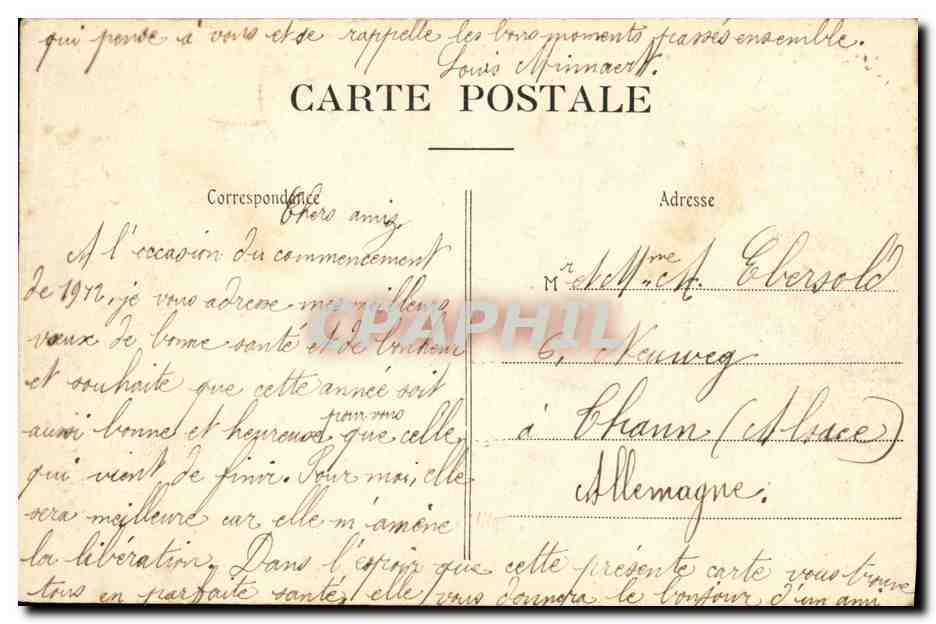 CARTE POSTALE
Correspondance
Chers amis,
A l'occasion du commencement
de 1912, je vous adresse mes meilleurs
vœux de bonne santé et de bonheur
et souhaite que cette année soit
pour vous
aussi bonne et heureuse que celle
qui vient de finir. Pour moi, elle
sera meilleure car elle m'amène
la libération. Dans l'espoir que cette présente carte vous trouve
tous en parfaite santé, elle vous donnera le bonjour d'un ami
qui pense à vous et se rappelle les bons moments passés ensemble.
Louis Minnaert.
Adresse
Mr et Mme A. Ebersold
6, Neuweg
à Thann (Alsace)
Allemagne.
CPAPHIL